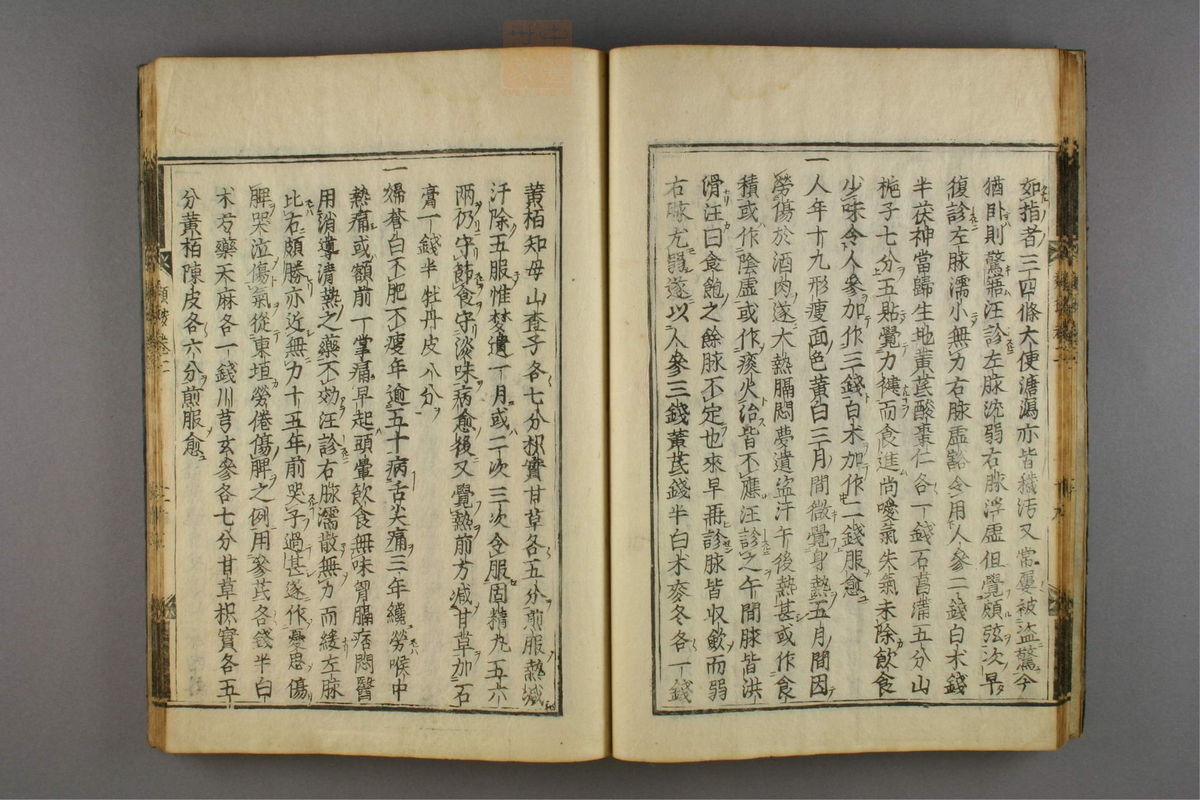 如指者三四條大便溏瀉亦皆穢污又常屢被盜驚今
猶臥則驚寤汪診左脉沈弱右脉浮虛但覺頗弦次早
復診左脉濡小無力右脉虛豁令用人參二錢白术錢
半茯神當歸生地黃芪酸棗仁各一錢石菖蒲五分山
梔子七分五貼覺力健而食進尚噯氣失氣未除飲食
少味令人參加作三錢白术加作二錢服愈
一人年十九形瘦面色黃白三月間微覺身熱五月間因
勞傷於酒肉遂大熱膈悶夢遺盜汗午後熱甚或作食
積或作陰虛或作痰火治皆不應汪診之午間脉皆洪
滑汪曰食飽之餘脉不定也來早再診脉皆收斂而弱
右脉尤弱遂以人參三錢黃芪錢半白术麥冬各一錢
黃栢知母山査子各七分枳實甘草各五分煎服熱減
汗除五服惟夢遺一月或二次三次令服固精丸五六
兩仍守節食守淡味病愈後又覺熱前方減甘草加石
膏一錢半牡丹皮八分
一婦蒼白不肥不瘦年逾五十病舌尖痛三年纔勞喉中
熱痛或額前一掌痛早起頭暈飲食無味胷膈痞悶醫
用消導清熱之藥不効汪診右脉濡散無力而緩左脉
比右頗勝亦近無力十五年前哭子過甚遂作憂思傷
脾哭泣傷氣從東垣勞倦傷脾之例用參芪各錢半白
术芍藥天麻各一錢川芎玄參各七分甘草枳實各五
分黃栢陳皮各六分煎服愈